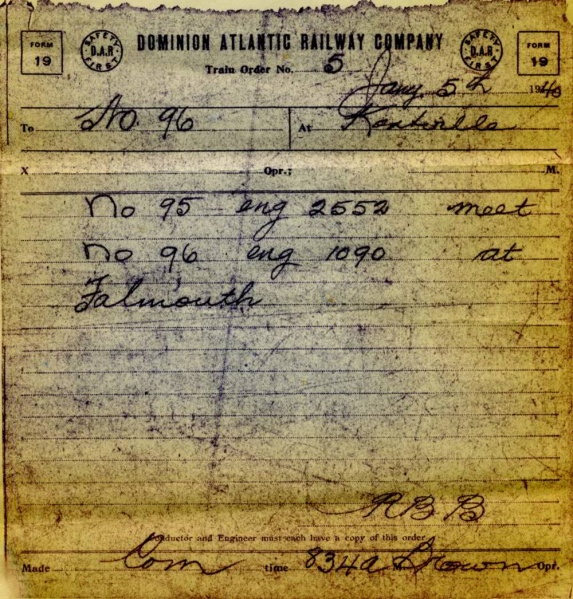 FORM 19
SAFETY FIRST D.A.R
DOMINION ATLANTIC RAILWAY COMPANY
SAFETY FIRST D.A.R
FORM 19
Train Order No. 5
Jany 5th 1940
To No. 96 At Kentville
X Opr.; M.
No 95 eng 2552 meet
No 96 eng 1090 at
Falmouth
RBB
Conductor and Engineer must each have a copy of this order
Made Com time 834a M Brown Opr.